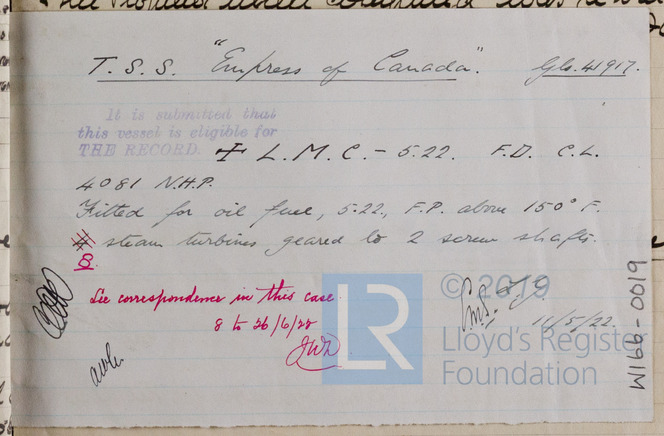 T.S.S. "Empress of Canada". Gls. 41917.
It is submitted that
this vessel is eligible for
THE RECORD. + L.M.C. - 5.22. F.D. C.L.
4081 N.H.P.
Fitted for oil fuel, 5.22., F.P. above 150° F.
steam turbines geared to 2 screw shafts.
8
See correspondence in this case.
8 to 26/6/28
11/5/22.
© 2019
LR
Lloyd's Register
Foundation
W166-0019